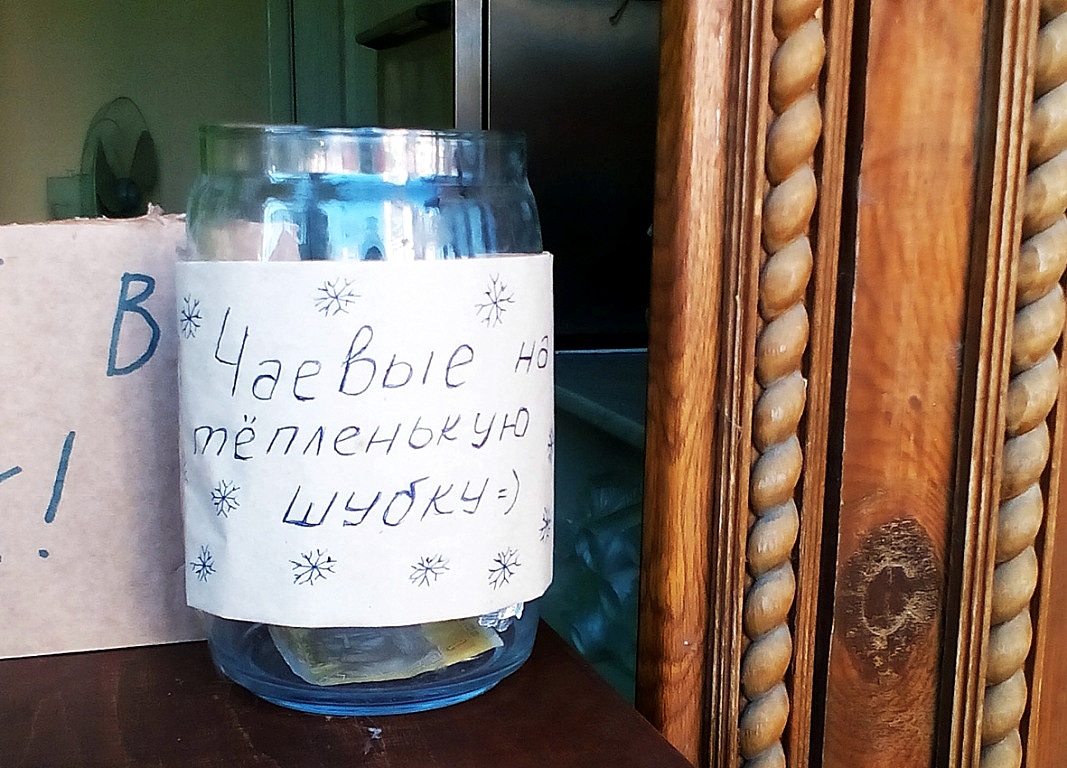 В
!
Чаевые на
тёпленькую
шубку =)